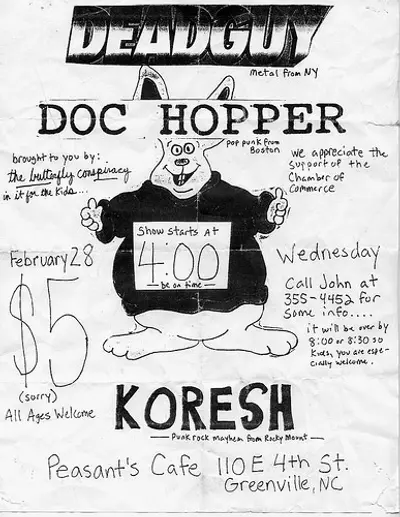 DEADGUY
metal from NY
DOC HOPPER
pop punk from
Boston
brought to you by:
the butterfly conspiracy
in it for the kids...
we appreciate the
support of the
Chamber of
Commerce
Show starts At
4:00
be on time
February 28
$5
(sorry)
All Ages Welcome
Wednesday
Call John at
355-4452 for
some info....
it will be over by
8:00 or 8:30 so
Kids, you are espe-
cially welcome.
KORESH
Punk rock mayhem from Rocky Mount
Peasant's Cafe 110 E 4th St.
Greenville, NC